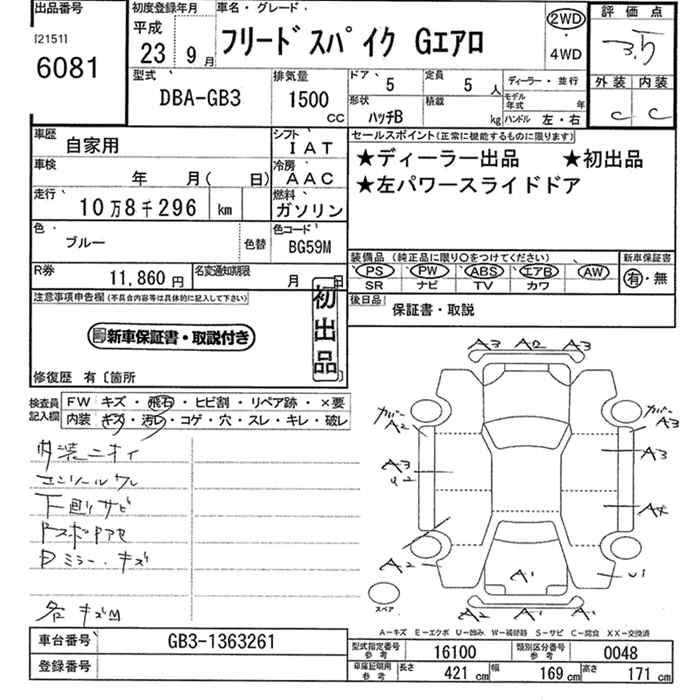 出品番号
[2151]
6081
初度登録年月
平成
23 9月
車名・グレード
フリードスパイク Gエアロ
2WD
・
4WD
評価点
3.5
外装 内装
C C
型式
DBA-GB3
排気量
1500
CC
ドア 5
定員 5 人
形状 ハッチB
積載 kg
ディーラー・並行
モデル年式 年
ハンドル 左・右
車歴 自家用
シフト IAT
車検 年 月( 日)
冷房 AAC
走行 10万8千296 km
燃料 ガソリン
色 ブルー
色替
色コード BG59M
R券 11,860円
名変通知期限 月 日
セールスポイント(正常に機能するものに限ります)
★ディーラー出品 ★初出品
★左パワースライドドア
装備品(純正品に限り○をつけてください)
PS PW ABS エアB AW
SR ナビ TV カワ
新車保証書
有・無
後日品
保証書・取説
注意事項申告欄(不具合内容等は具体的に記入して下さい)
新車保証書・取説付き
初出品
修復歴 有〔箇所
検査員記入欄
FW キズ・飛石・ヒビ割・リペア跡・×要
内装 キズ・汚レ・コゲ・穴・スレ・キレ・破レ
内装ニオイ
コンソールワレ
下廻りサビ
Dミラー・キズ
各キズM
A3 A2 A3
カバー A2
カバー A3
A3
U2
A3
A2
A1
U1
A2 A1 A2
スペア
A-キズ E-エクボ U-凹み W-補修跡 S-サビ C-腐食 XX-交換済
車台番号 GB3-1363261
登録番号
型式指定番号 参考 16100
類別区分番号 参考 0048
車庫証明用 参考 長さ 421 cm 幅 169 cm 高さ 171 cm